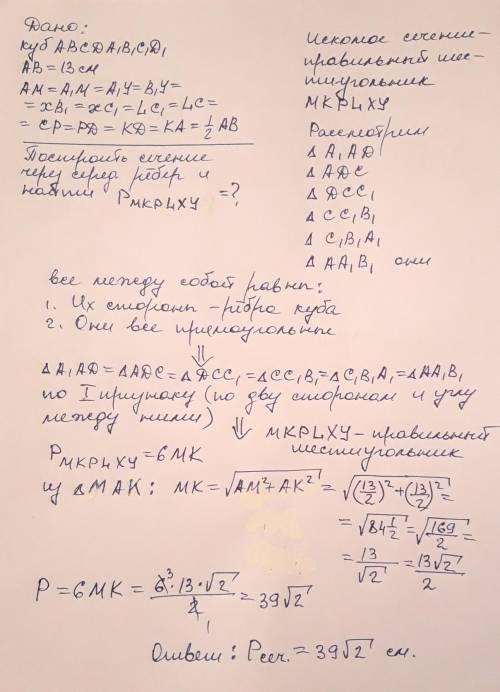 Дано:
куб ABCDA₁B₁C₁D₁
AB = 13 см
AM = A₁M = A₁Y = B₁Y =
= XB₁ = XC₁ = LC₁ = LC =
= CP = PD = KD = KA = 1/2 AB
Построить сечение
через серед рёбер и
найти P_MKPLXY = ?
Искомое сечение-
правильный шес-
тиугольник
MKPLXY
Рассмотрим
Δ A₁AD
Δ ADC
Δ DCC₁
Δ CC₁B₁
Δ C₁B₁A₁
Δ AA₁B₁ они
все между собой равны:
1. Их стороны - рёбра куба
2. Они все прямоугольные
⇓
ΔA₁AD = ΔADC = ΔDCC₁ = ΔCC₁B₁ = ΔC₁B₁A₁ = ΔAA₁B₁
по I признаку (по двум сторонам и углу
между ними) ⇓ MKPLXY - правильный
шестиугольник
P_MKPLXY = 6MK
из ΔMAK: MK = √(AM² + AK²) = √((13/2)² + (13/2)²) =
= √(84 1/2) = √(169/2) =
= 13/√2 = 13√2/2
P = 6MK = 6³·13·√2/2₁ = 39√2
Ответ: Pсеч. = 39√2 см.